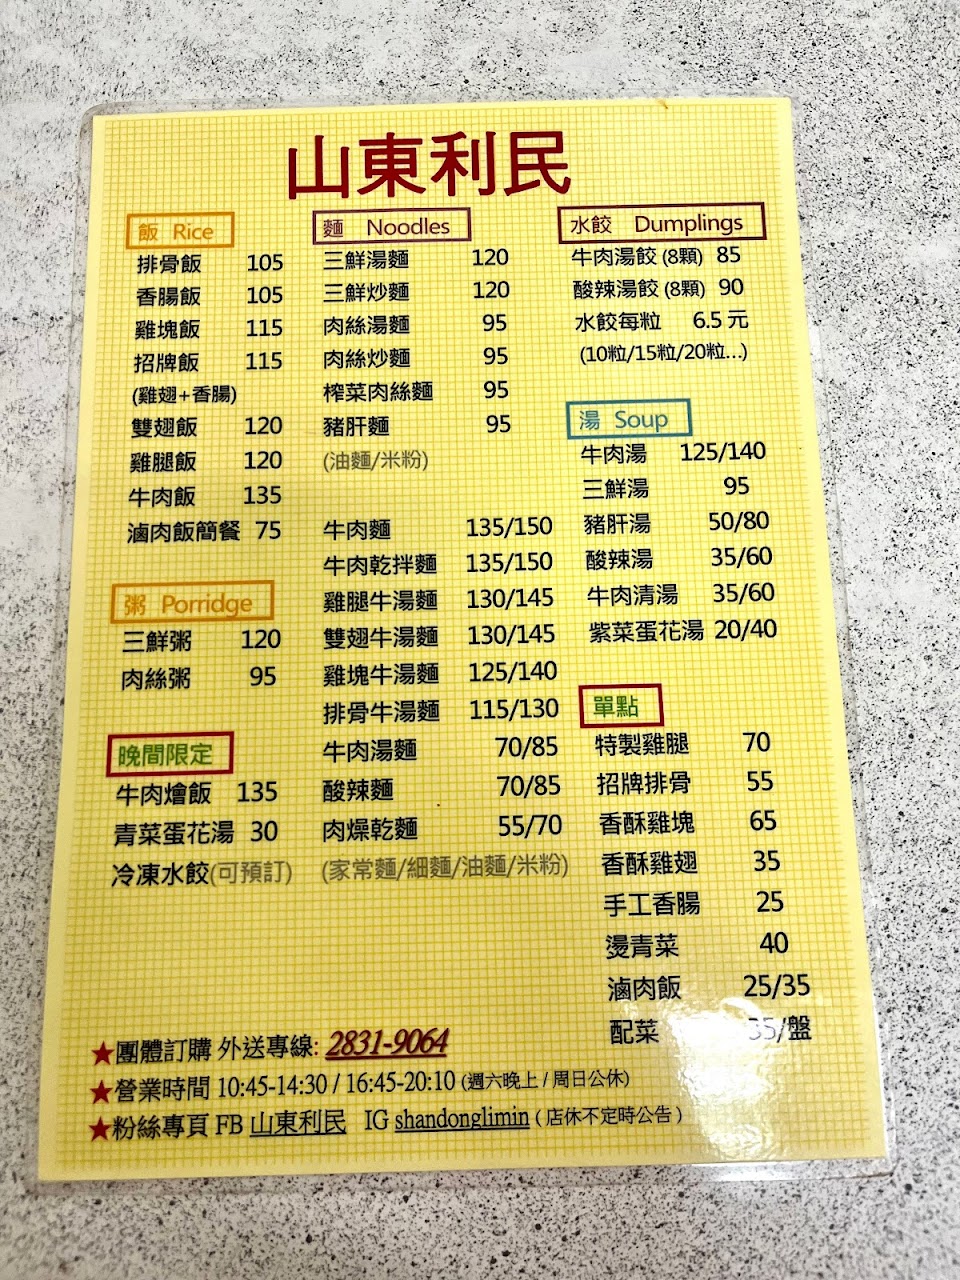 山東利民
飯 Rice
排骨飯 105
香腸飯 105
雞塊飯 115
招牌飯 115
(雞翅+香腸)
雙翅飯 120
雞腿飯 120
牛肉飯 135
滷肉飯簡餐 75
粥 Porridge
三鮮粥 120
肉絲粥 95
晚間限定
牛肉燴飯 135
青菜蛋花湯 30
冷凍水餃(可預訂)
麵 Noodles
三鮮湯麵 120
三鮮炒麵 120
肉絲湯麵 95
肉絲炒麵 95
榨菜肉絲麵 95
豬肝麵 95
(油麵/米粉)
牛肉麵 135/150
牛肉乾拌麵 135/150
雞腿牛湯麵 130/145
雙翅牛湯麵 130/145
雞塊牛湯麵 125/140
排骨牛湯麵 115/130
牛肉湯麵 70/85
酸辣麵 70/85
肉燥乾麵 55/70
(家常麵/細麵/油麵/米粉)
水餃 Dumplings
牛肉湯餃 (8顆) 85
酸辣湯餃 (8顆) 90
水餃每粒 6.5 元
(10粒/15粒/20粒...)
湯 Soup
牛肉湯 125/140
三鮮湯 95
豬肝湯 50/80
酸辣湯 35/60
牛肉清湯 35/60
紫菜蛋花湯 20/40
單點
特製雞腿 70
招牌排骨 55
香酥雞塊 65
香酥雞翅 35
手工香腸 25
燙青菜 40
滷肉飯 25/35
配菜 35/盤
★團體訂購 外送專線: 2831-9064
★營業時間 10:45-14:30 / 16:45-20:10 (週六晚上 / 周日公休)
★粉絲專頁 FB 山東利民 IG shandonglimin ( 店休不定時公告 )